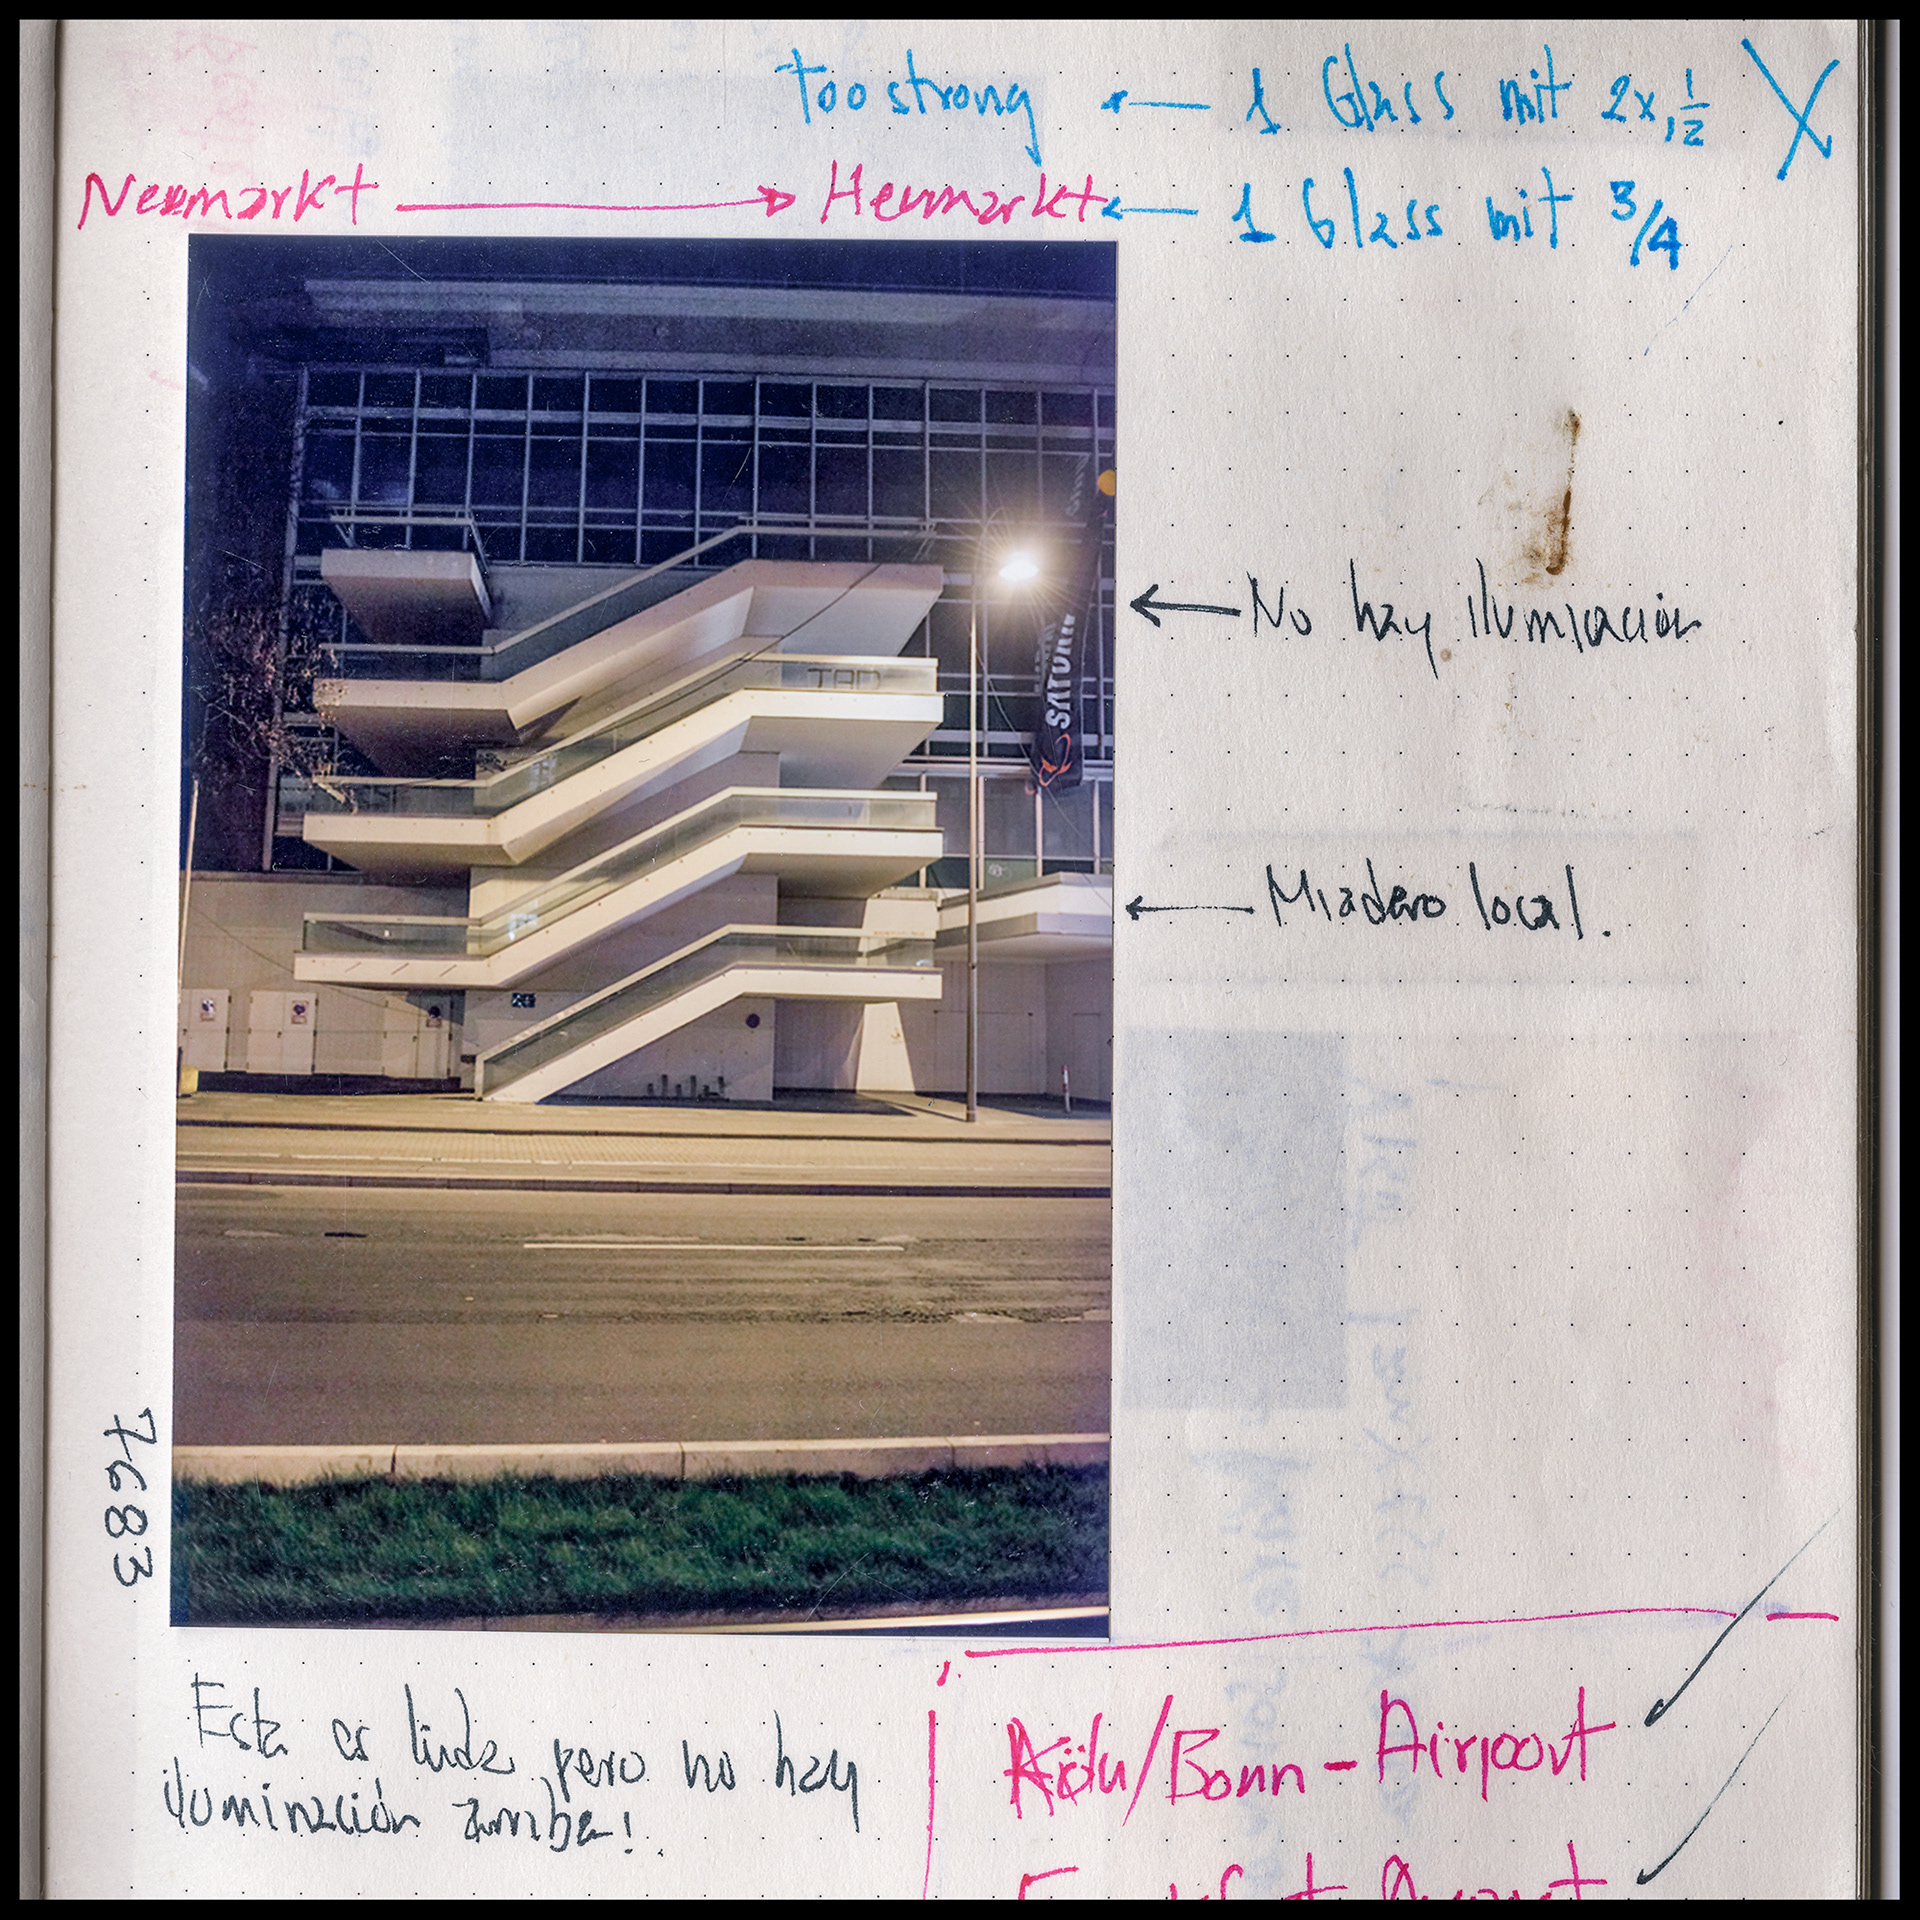 too strong ← 1 Glass mit 2x, 1/2 X
Neumarkt → Heumarkt ← 1 Glass mit 3/4
TAD
SATURN
← No hay iluminación
← Miadero local.
7683
Esta es linda pero no hay
iluminación arriba!
Köln/Bonn - Airport